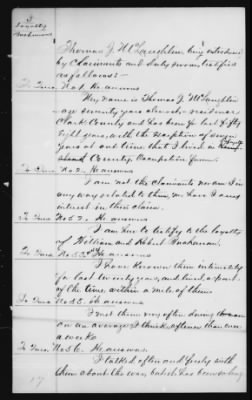 2
Loyalty
Buchanans
Thomas J. McLaughlin, being introduced
by Claimants and duly sworn, testifies
as follows: -
To Ques. No. 1. He answers
My name is Thomas J. McLaughlin
am seventy years old and a resident
Clark County and has been for last fifty
eight years, with the exception of seven
years at one time that I lived in
County, Occupation farmer.
To Ques No. 2. He answers
I am not the claimants nor am I in
any way related to them, nor have I any
interest in their claim.
To Ques No. 52. He answers
I am here to testify to the loyalty
of William and Robert Buchanan.
To Ques. No. 53. He answers
I have known them intimately
for last twenty years, and lived a part
of the time, within a mile of them.
To Ques No 55. He answers
I met them very often during the war
on an average I think, oftener than once
a week.
To Ques. No 56. He answers.
I talked often and freely with
them about the war, but it has been so long
17